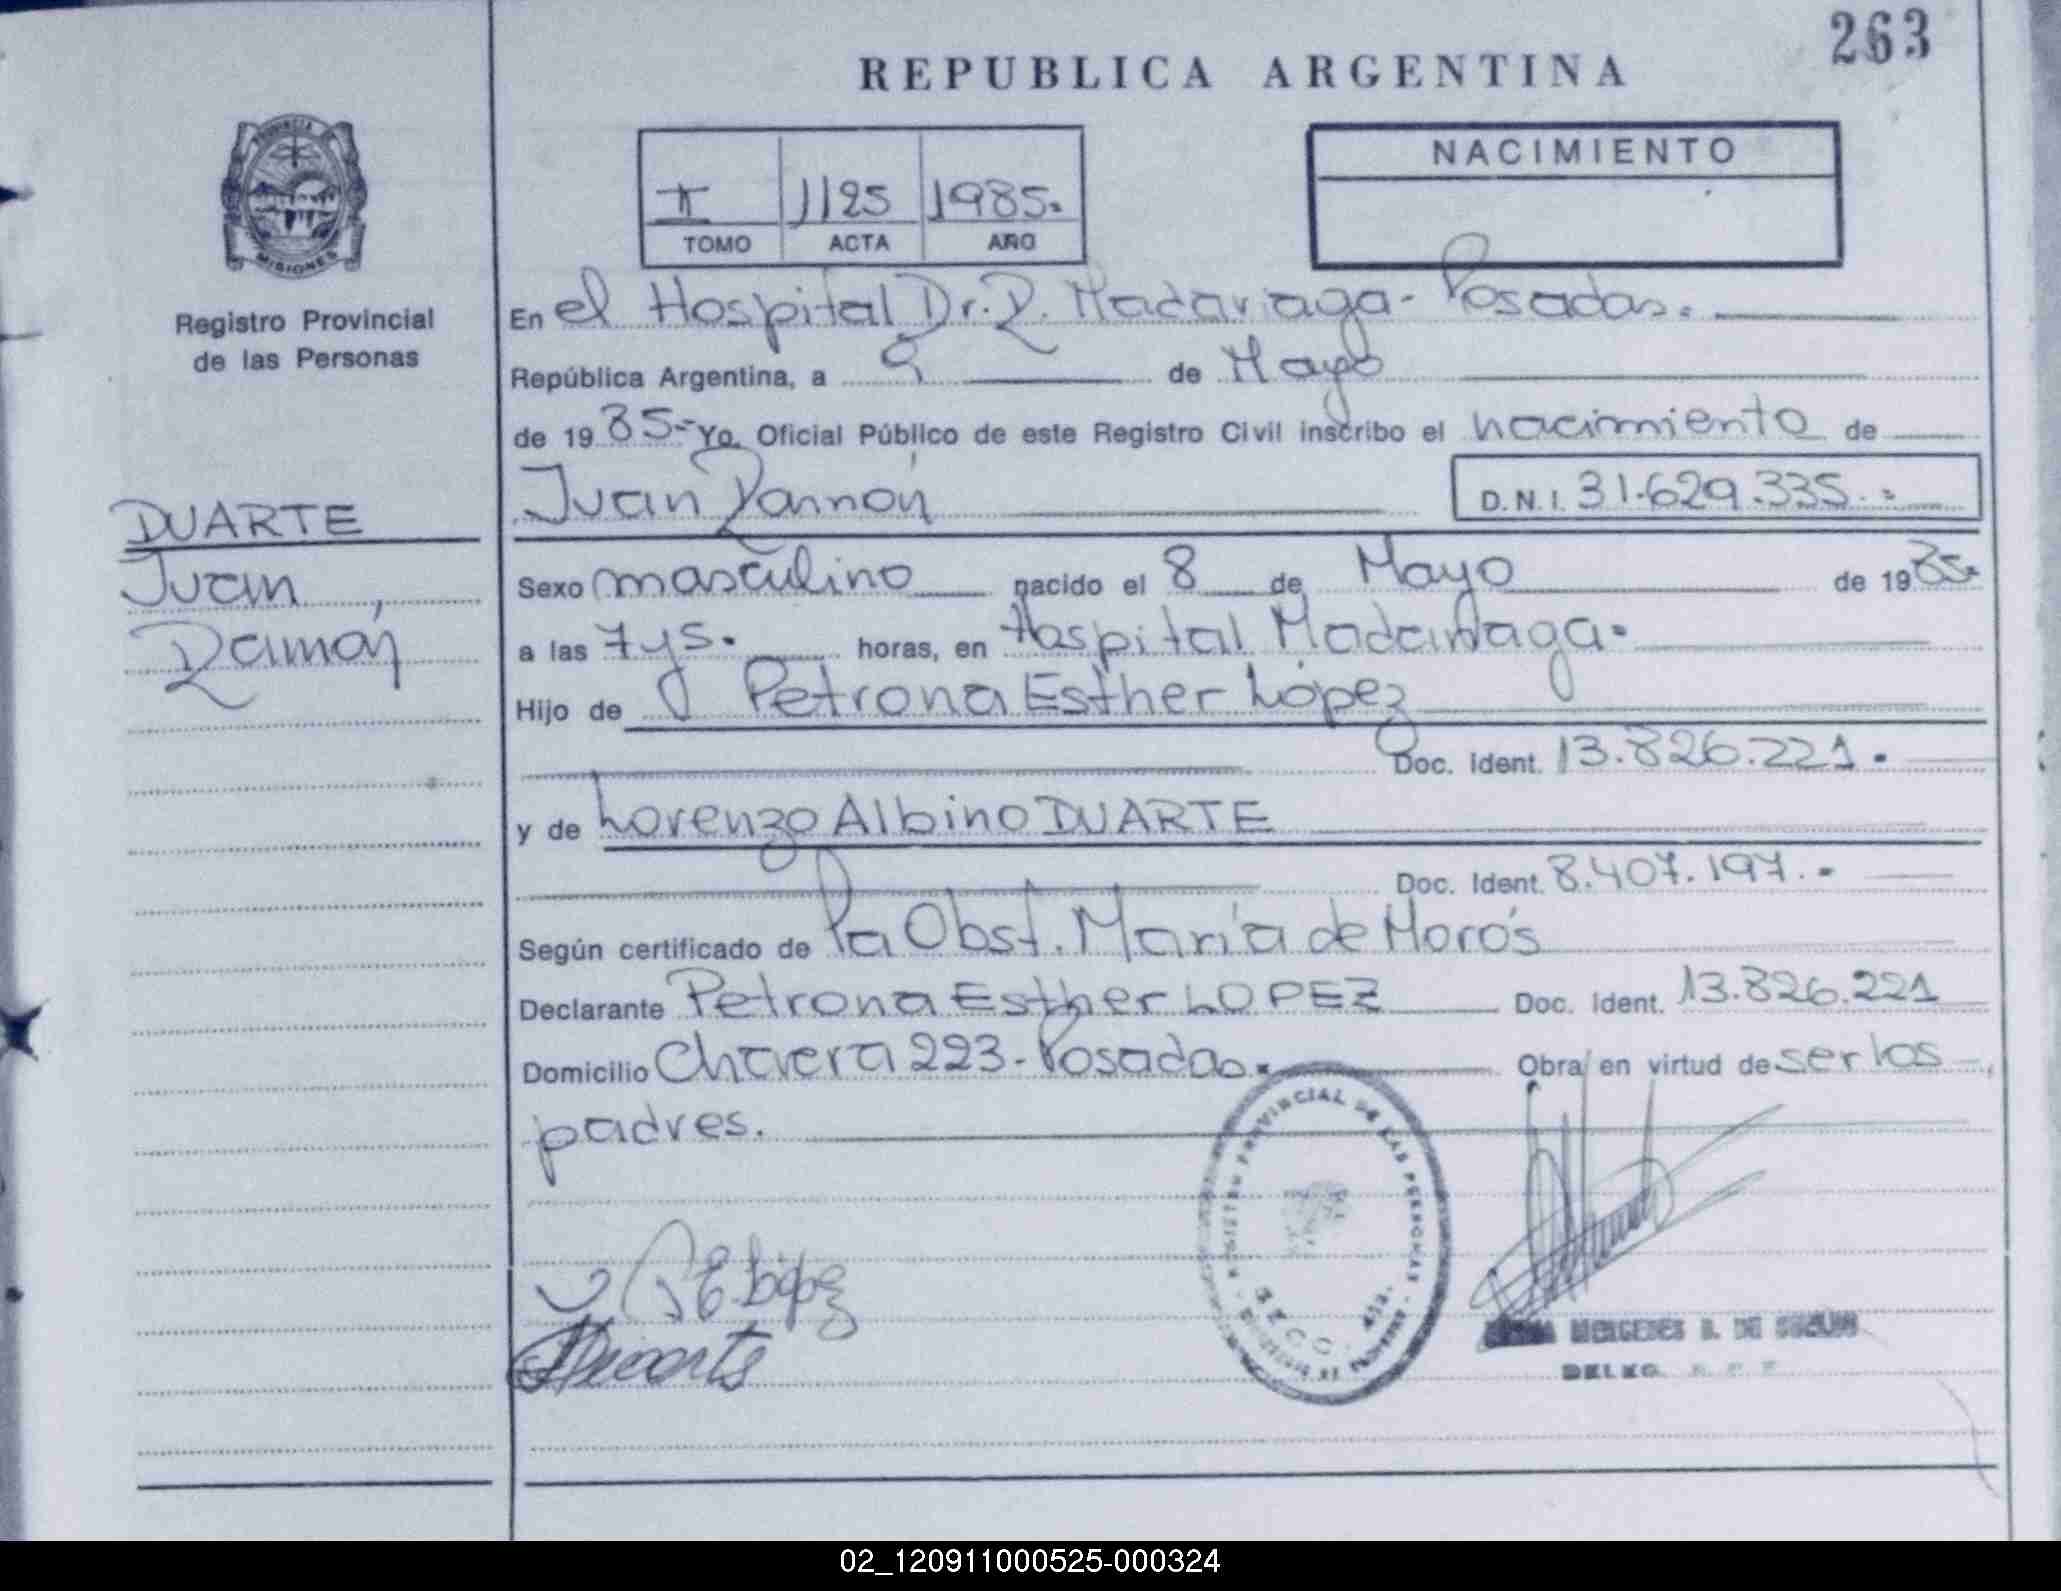 263
REPUBLICA ARGENTINA
PROVINCIA
MISIONES
Registro Provincial
de las Personas
II 1125 1985.
TOMO ACTA AÑO
NACIMIENTO
En el Hospital Dr. R. Madariaga - Posadas.
República Argentina, a 9 de Mayo
de 19 85.- Yo, Oficial Público de este Registro Civil inscribo el nacimiento de
Juan Ramón
D.N.I. 31.629.335.-
DUARTE
Juan
Ramón
Sexo masculino nacido el 8 de Mayo de 19 85.
a las 7 y 5. horas, en Hospital Madariaga.
Hijo de Petrona Esther López
Doc. Ident. 13.826.221.
y de Lorenzo Albino DUARTE
Doc. Ident. 8.407.197.-
Según certificado de la Obst. María de Morós
Declarante Petrona Esther LOPEZ Doc. Ident. 13.826.221
Domicilio 223 - Posadas. Obra en virtud de ser los
padres.
REGISTRO PROVINCIAL DE LAS PERSONAS
P E López
Duarte
MERCEDES B. DE
DELEG. R. P. P.
02_120911000525-000324